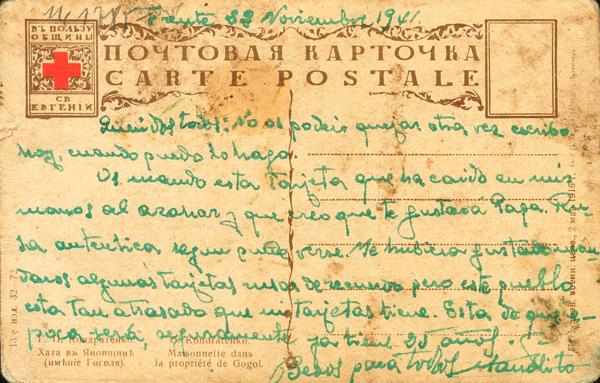 Frente 22 Noviembre 1941.
ВЪ ПОЛЬЗУ
ОБЩИНЫ
СВ
ЕВГЕНІИ
ПОЧТОВАЯ КАРТОЧКА
CARTE POSTALE
Queridos todos: No os podeis quejar otra vez escribo
hoy, cuando puedo lo hago.
Os mando esta tarjeta que ha caido en mis
manos al azar y que creo que te gustará Papá.
autentica segun puede verse. Me hubiera gustado man
daros algunas tarjetas rusas de recuerdo pero este pueblo
esta tan atrasado que ni tarjetas tiene. Esta de que
epoca será, seguramente ya tiene 25 años.
Besos para todos Manolito
Кондратенко.
Хата въ Яновщинѣ
(имѣніе Гоголя).
Kondratenko.
Maisonnette dans
la propriété de Gogol.